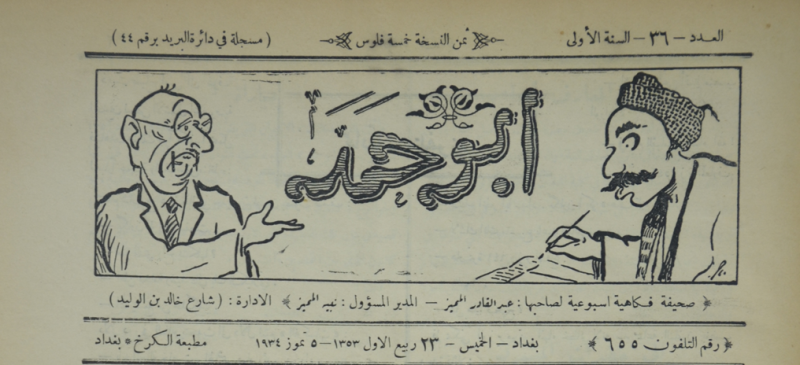 العدد - ٣٦ - السنة الأولى
ثمن النسخة خمسة فلوس
( مسجلة في دائرة البريد برقم ٤٤ )
أبو حمد
صحيفة فكاهية اسبوعية لصاحبها : عبد القادر المميز - المدير المسؤول : نبيه المميز الادارة : ( شارع خالد بن الوليد )
رقم التلفون ٦٥٥ بغداد - الخميس - ٢٣ ربيع الاول ١٣٥٣ - ٥ تموز ١٩٣٤ مطبعة الكرخ بغداد